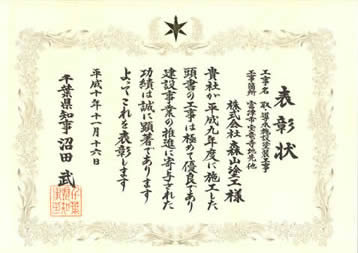 表彰状
工事名 取・導水施設塗装工事
工事箇所 富津市宝竜寺地先他
株式会社 森山塗工 様
貴社が平成九年度に施工した
頭書の工事は極めて優良であり
建設事業の推進に寄与された
功績は誠に顕著であります
よってこれを表彰します
平成十年十一月十六日
千葉県知事 沼田 武